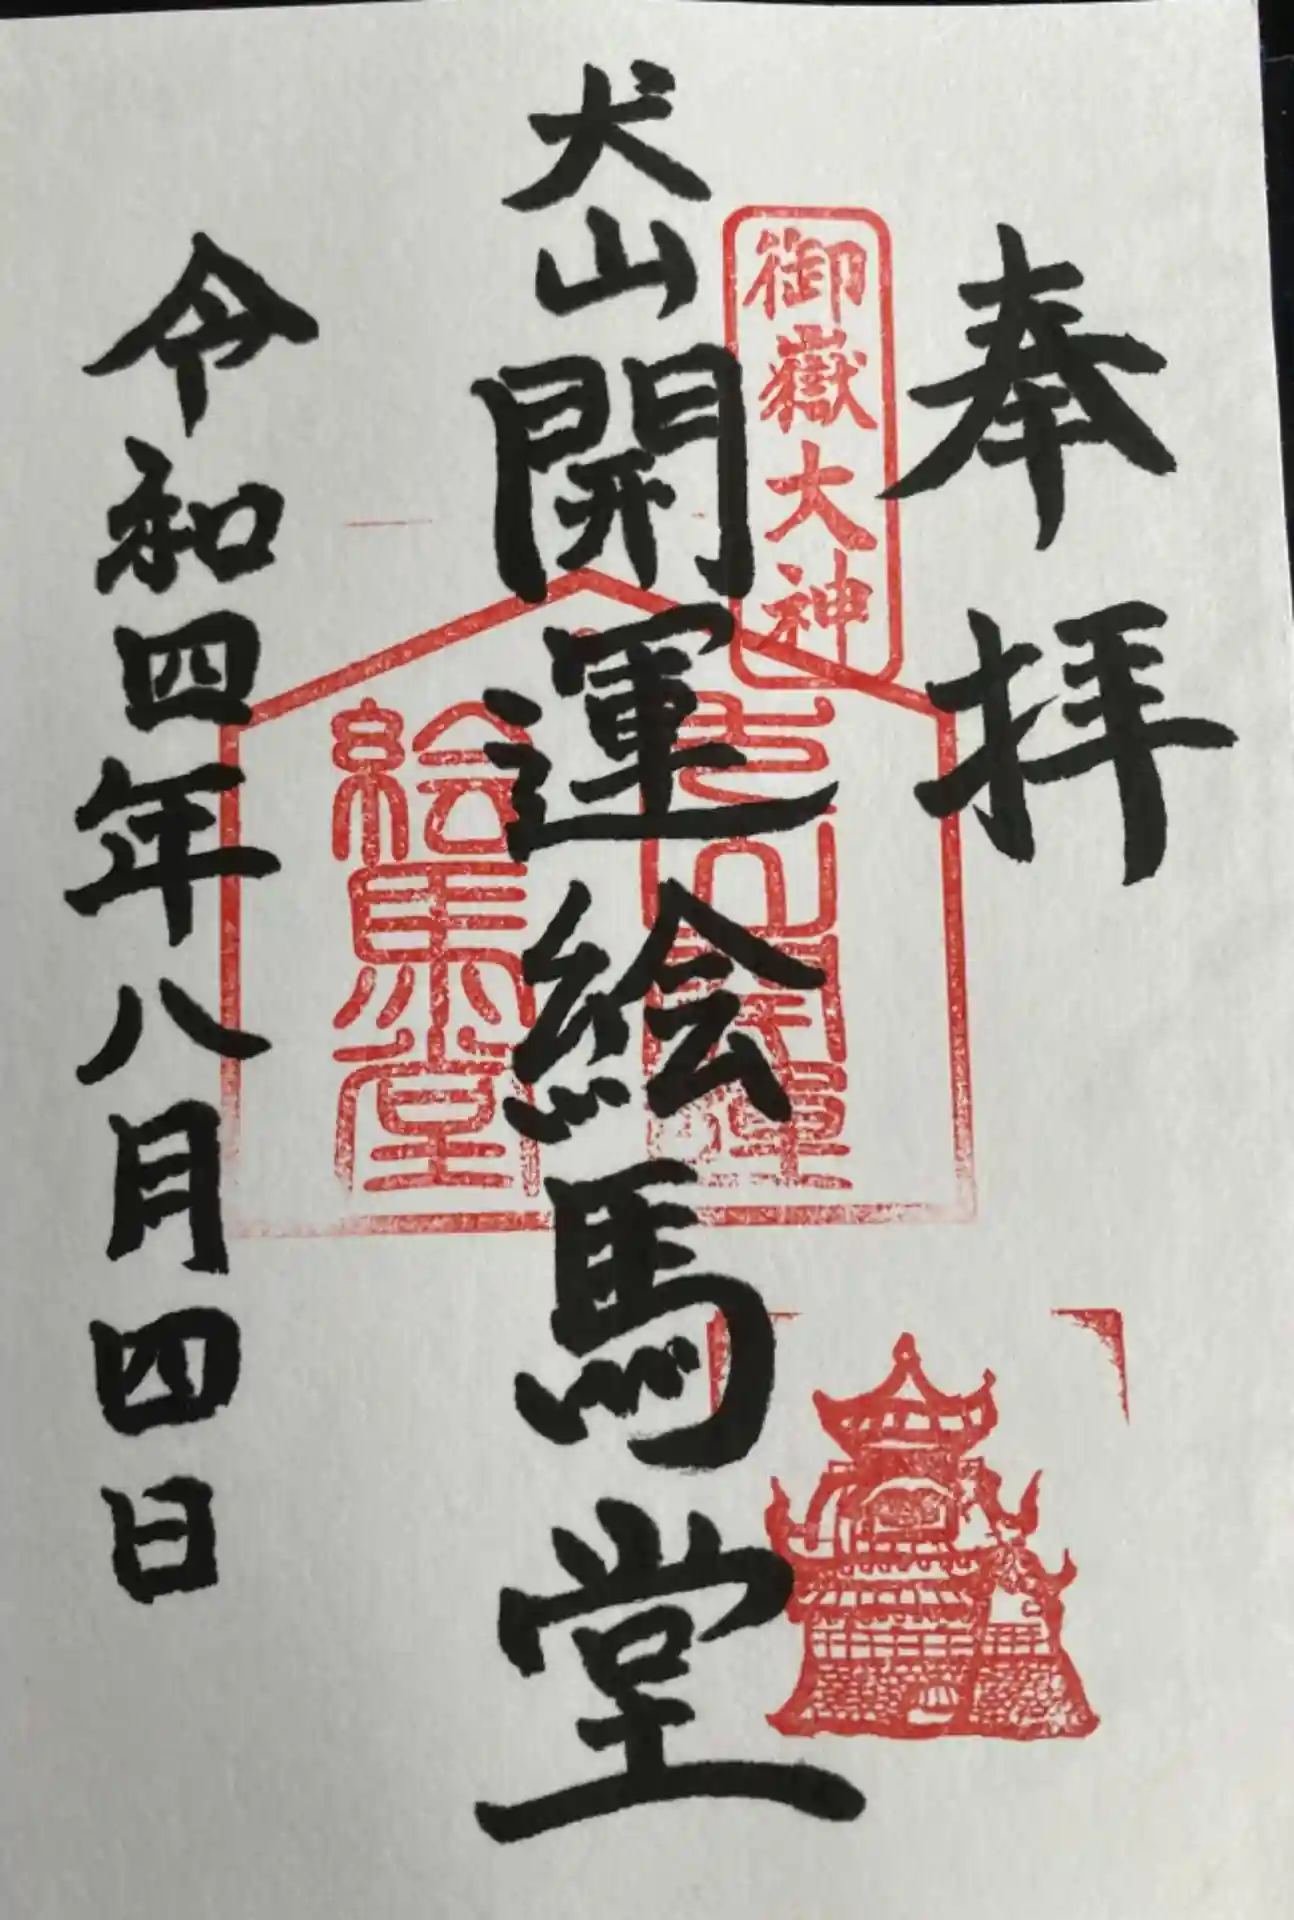 奉拝
御嶽大神
犬山開運絵馬堂
犬山開運
絵馬堂
令和四年八月四日